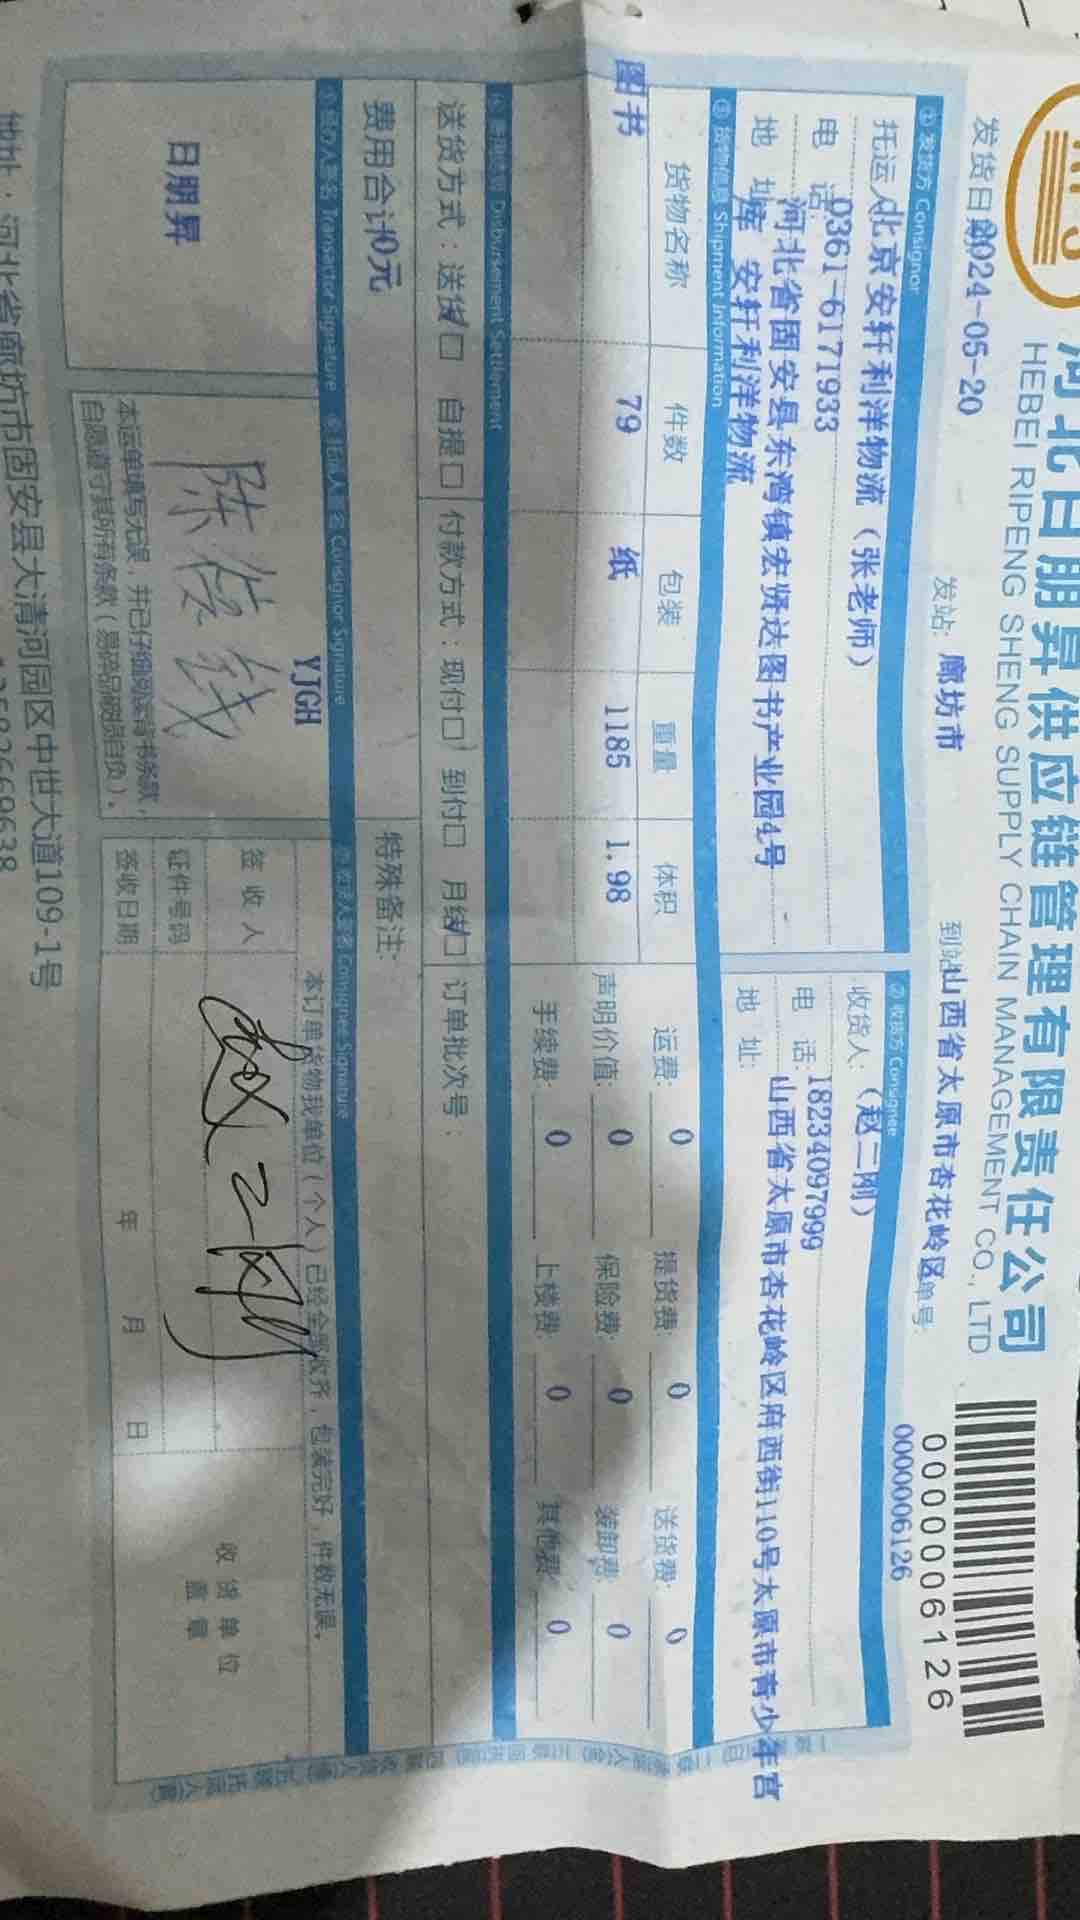 河北日朋昇供应链管理有限责任公司
HEBEI RIPENG SHENG SUPPLY CHAIN MANAGEMENT CO., LTD
0000006126
发货日期 2024-05-20 发站: 廊坊市 到站 山西省太原市杏花岭区 单号: 0000006126
① 发货方 Consignor ② 收货方 Consignee
托运人 北京安轩利洋物流（张老师） 收货人: （赵二刚）
电 话: 0361-6171933 电 话: 18234097999
地 址: 河北省固安县东湾镇宏贤达图书产业园4号库 安轩利洋物流 地 址: 山西省太原市杏花岭区府西街110号太原市青少年宫
③ 货物信息 Shipment Information
货物名称 件数 包装 重量 体积 运费: 0 提货费: 0 送货费: 0
图书 79 纸 1185 1.98 声明价值: 0 保险费: 0 装卸费: 0
手续费: 0 上楼费: 0 其他费: 0
Disbursement Settlement
送货方式：送货☑ 自提□ 付款方式：现付□ 到付□ 月结☑ 订单批次号：
费用合计 0元 特殊备注:
Transactor Signature Consignor Signature Consignee Signature
日朋昇
YJGH
本订单货物我单位（个人）已经全部收齐，包装完好，件数无误。
签 收 人 赵二刚
证件号码
签收日期 年 月 日
收 货 单 位
盖 章
本运单填写无误，并已仔细阅读背书条款，
自愿遵守其所有条款（易碎品破损自负）。
地址：河北省廊坊市固安县大清河园区中世大道109-1号